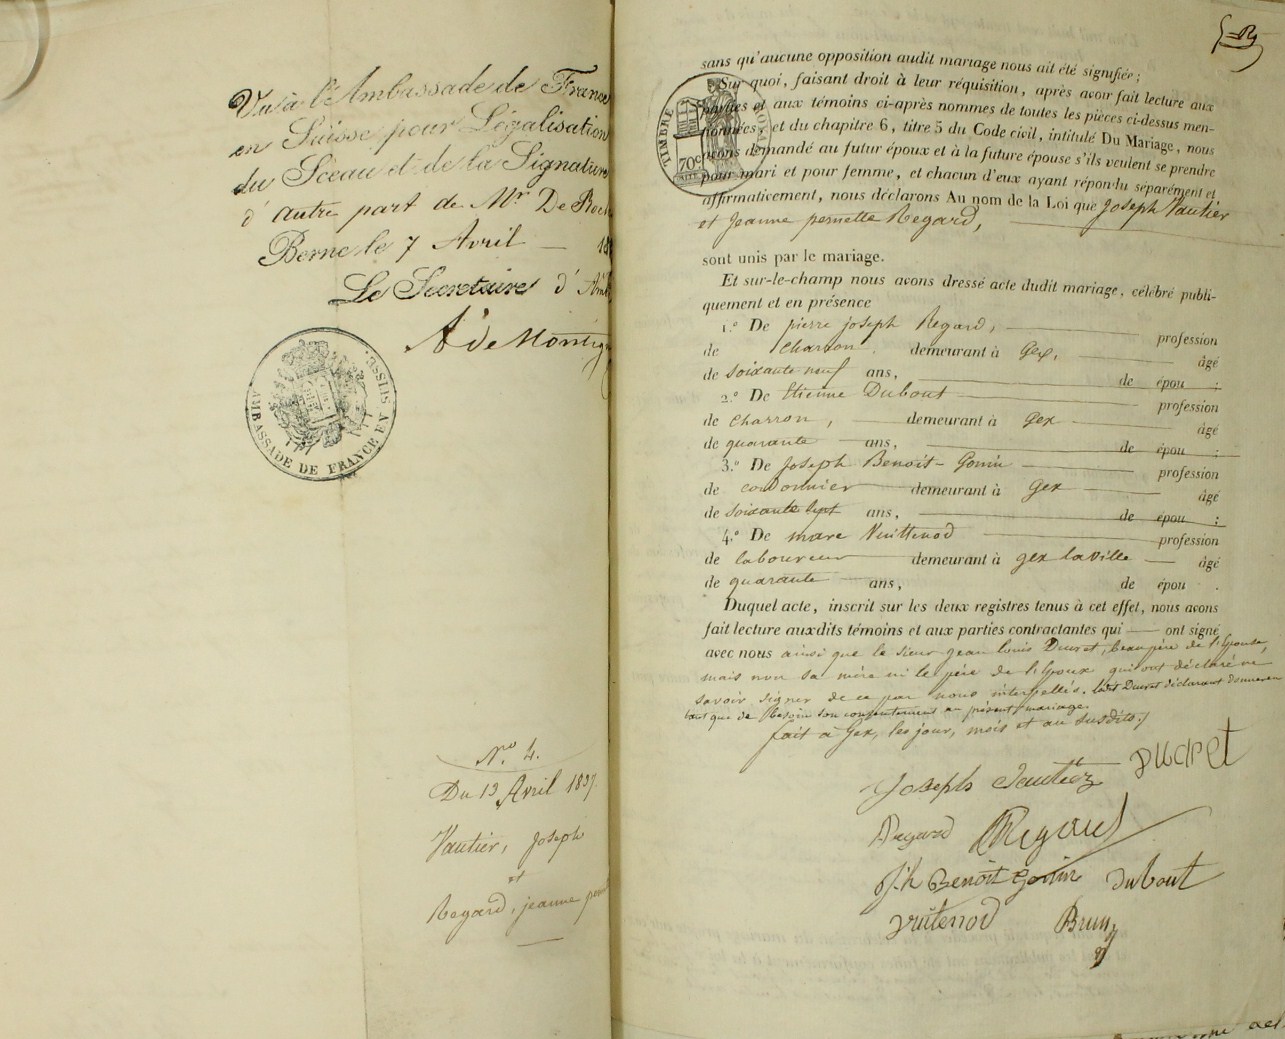 Vu à l'Ambassade de France
en Suisse pour Légalisation
du Sceau et de la Signature
d'autre part de Mr De
Berne le 7 Avril — 18
Le Secrétaire d'Am
A de Montign
AMBASSADE DE FRANCE EN SUISSE
No 4.
Du 13 Avril 1837
Vautier, Joseph
et
Regard, jeanne
sans qu'aucune opposition audit mariage nous ait été signifiée ;
Sur quoi, faisant droit à leur réquisition, après avoir fait lecture aux
parties et aux témoins ci-après nommés de toutes les pièces ci-dessus men-
tionnées, et du chapitre 6, titre 5 du Code civil, intitulé Du Mariage, nous
avons demandé au futur époux et à la future épouse s'ils veulent se prendre
pour mari et pour femme, et chacun d'eux ayant répondu séparément et
affirmativement, nous déclarons Au nom de la Loi que Joseph Vautier
et Jeanne pernette Regard,
TIMBRE
70c
sont unis par le mariage.
Et sur-le-champ nous avons dressé acte dudit mariage, célébré publi-
quement et en présence
1.° De pierre joseph Regard, profession
de Charron demeurant à Gex, âgé
de soixante neuf ans, de épou ;
2.° De Etienne Dubout profession
de Charron, demeurant à Gex âgé
de quarante ans, de épou ;
3.° De Joseph Benoit-Gonin profession
de cordonnier demeurant à Gex âgé
de soixante sept ans, de épou ;
4.° De marc Vuittenod profession
de laboureur demeurant à gex la ville âgé
de quarante ans, de épou .
Duquel acte, inscrit sur les deux registres tenus à cet effet, nous avons
fait lecture auxdits témoins et aux parties contractantes qui — ont signé
avec nous ainsi que le sieur jean louis Ducret, beaupère de l'Epouse,
mais non sa mère ni le père de l'Epoux qui ont déclaré ne
savoir signer de ce par nous interpellés. ledit Ducret déclarant donner en
tant que de Besoin son consentement au présent mariage.
fait à Gex, les jour, mois et an susdits./
Joseph Vautier Ducret
Regard Regard
Jh Benoit Gonin Dubout
Vuitenod Brun